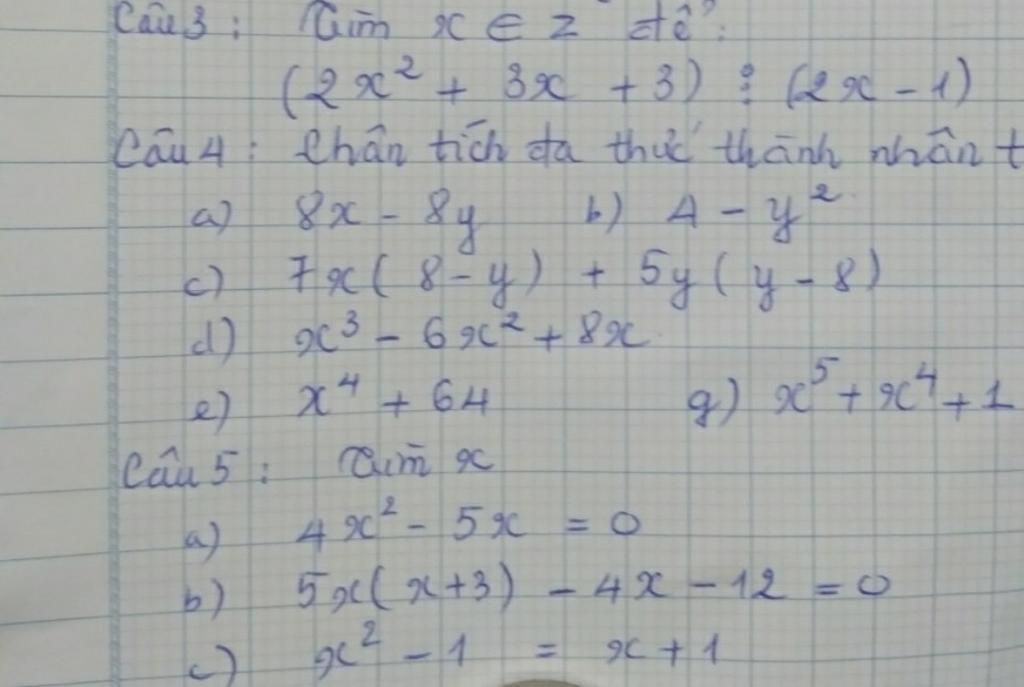 Câu 3 : Tìm x ∈ Z để :
(2x² + 3x + 3) ⋮ (2x - 1)
Câu 4 : Phân tích đa thức thành nhân t
a) 8x - 8y b) 4 - y²
c) 7x( 8 - y) + 5y( y - 8)
d) x³ - 6x² + 8x
e) x⁴ + 64 g) x⁵ + x⁴ + 1
Câu 5 : Tìm x
a) 4x² - 5x = 0
b) 5x( x+3) - 4x - 12 = 0
c) x² - 1 = x + 1